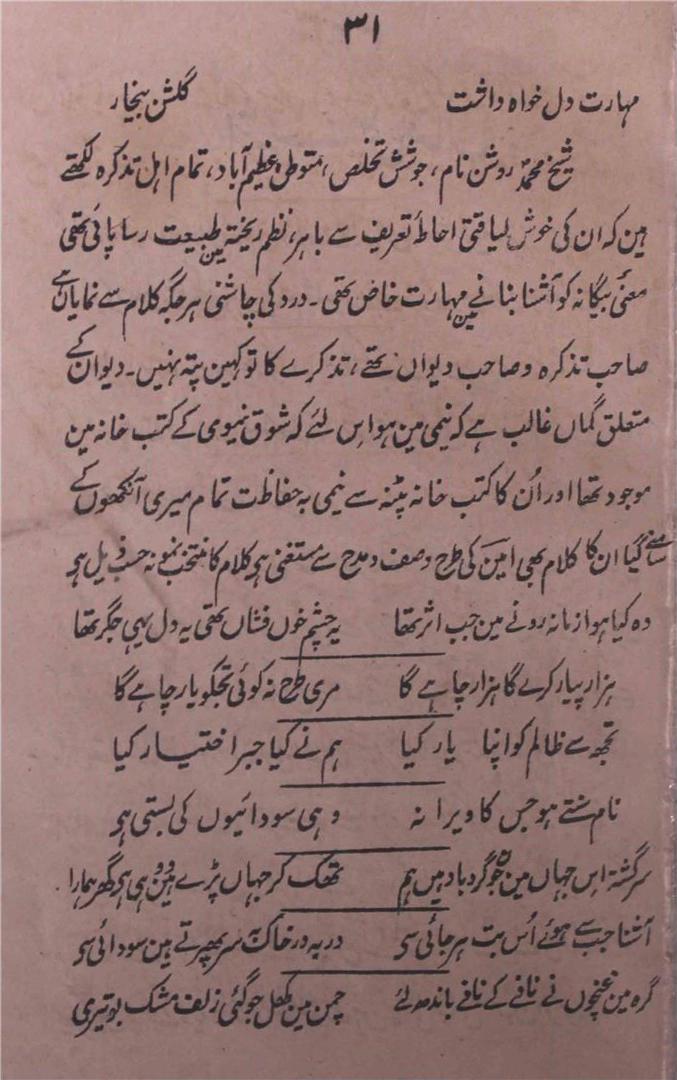 ۳۱
مہارت دل خواہ داشت گلشن بیخار
شیخ محمد روشن نام، جوشش تخلص، متوطن عظیم آباد، تمام اہل تذکرہ لکھتے
ہین کہ ان کی خوش لیاقتی احاطۂ تعریف سے باہر، نظم ریختہ مین طبیعت رسا پائی تھی
معنی بیگانہ کو آشنا بنانے مین مہارت خاص تھی۔ درد کی چاشنی ہر جگہ کلام سے نمایان ہے
صاحب تذکرہ و صاحب دیواں تھے، تذکرے کا تو کہین پتہ نہیں۔ دیوان کے
متعلق گماں غالب ہے کہ نیمی مین ہو اس لئے کہ شوق نیموی کے کتب خانہ مین
موجود تھا اور اُن کا کتب خانہ پٹنہ سے نیمی بہ حفاظت تمام میری آنکھوں کے
سامنے گیا ان کا کلام بھی امین کی طرح وصف و مدح سے مستغنی ہو کلام کا منتخب نمونہ حسب ذیل ہو
وہ کیا ہوا زمانہ رونے مین جب اثر تھا یہ چشم خوں فشاں تھی یہ دل یہی جگر تھا
ہزار پیار کرے گا ہزار چاہے گا مری طرح نہ کوئی تجکو یار چاہے گا
تجھ سے ظالم کو اپنا یار کیا ہم نے کیا جبر اختیار کیا
نام سنتے ہو جس کا ویرانہ وہی سودائیوں کی بستی ہو
سرگشتہ اس جہاں مین جو گردباد ہیں ہم تھک کر جہاں پڑے ہین وو ہی ہو گھر ہمارا
آشنا جب سے ہوئے اُس بت ہرجائی سی در بہ در خاک بہ سر پھرتے ہین سودائی سی
گرہ مین غنچوں نے نافے کے نافے باندھ لئے چمن مین کھل جو گئی زلف مشک بو تیری